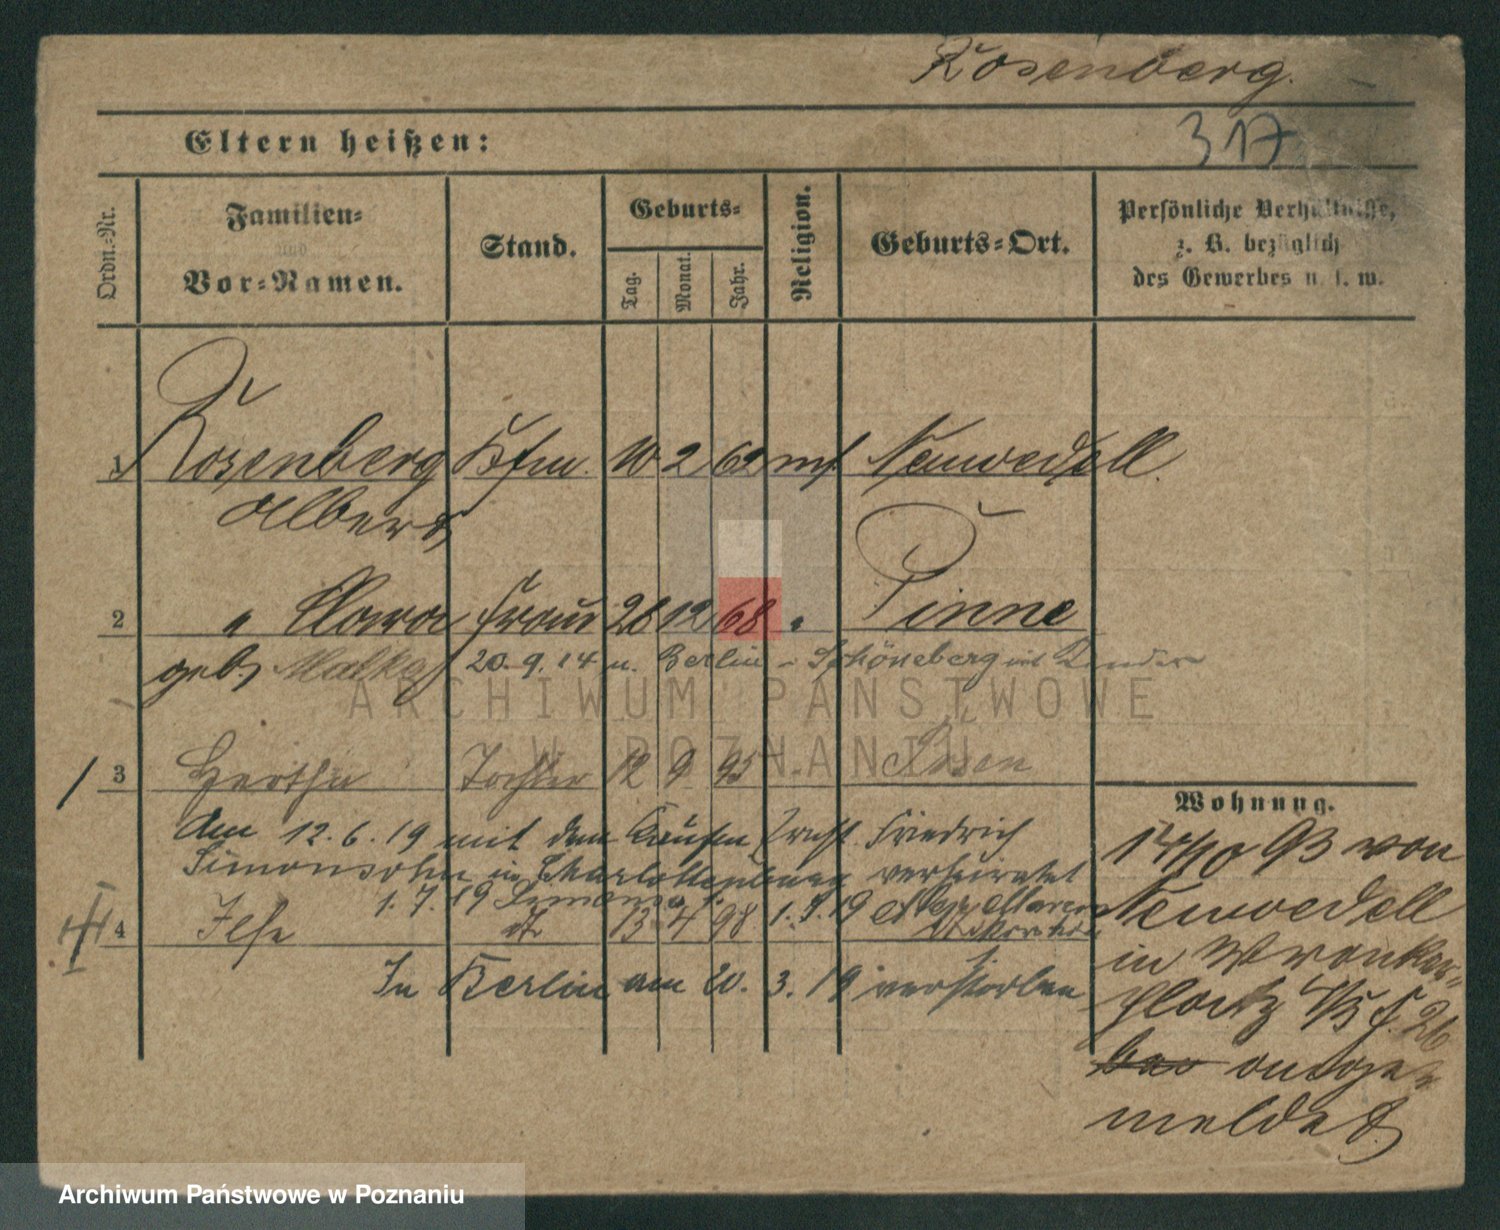 Rosenberg.
317
Eltern heißen:
Ordn.-Nr.
Familien-
und
Vor-Namen.
Stand.
Geburts-
Tag.
Monat.
Jahr.
Religion.
Geburts-Ort.
Persönliche Verhältnisse,
z. B. bezüglich
des Gewerbes u. s. w.
1 Rosenberg Kfm. 10 2 62 mos. Neuwedell.
Albert
2 " Clara Frau 26 12 68 " Pinne
geb. 20.9.14 n. Berlin-Schöneberg mit Kinder
3 Hertha Tochter 12 9 95 " Posen
Am 12.6.19 mit dem Kaufm. Ernst Friedrich
Simonsohn in Charlottenburg verheiratet
1.7.19
4 Ilse dt. 13 4 98
In Berlin am 20. 3. 19 verstorben
Wohnung.
14/10 93 von
Neuwedell
in Wronker-
platz 4/5 b. 26
ange-
meldet.
ARCHIWUM PAŃSTWOWE
W POZNANIU
Archiwum Państwowe w Poznaniu